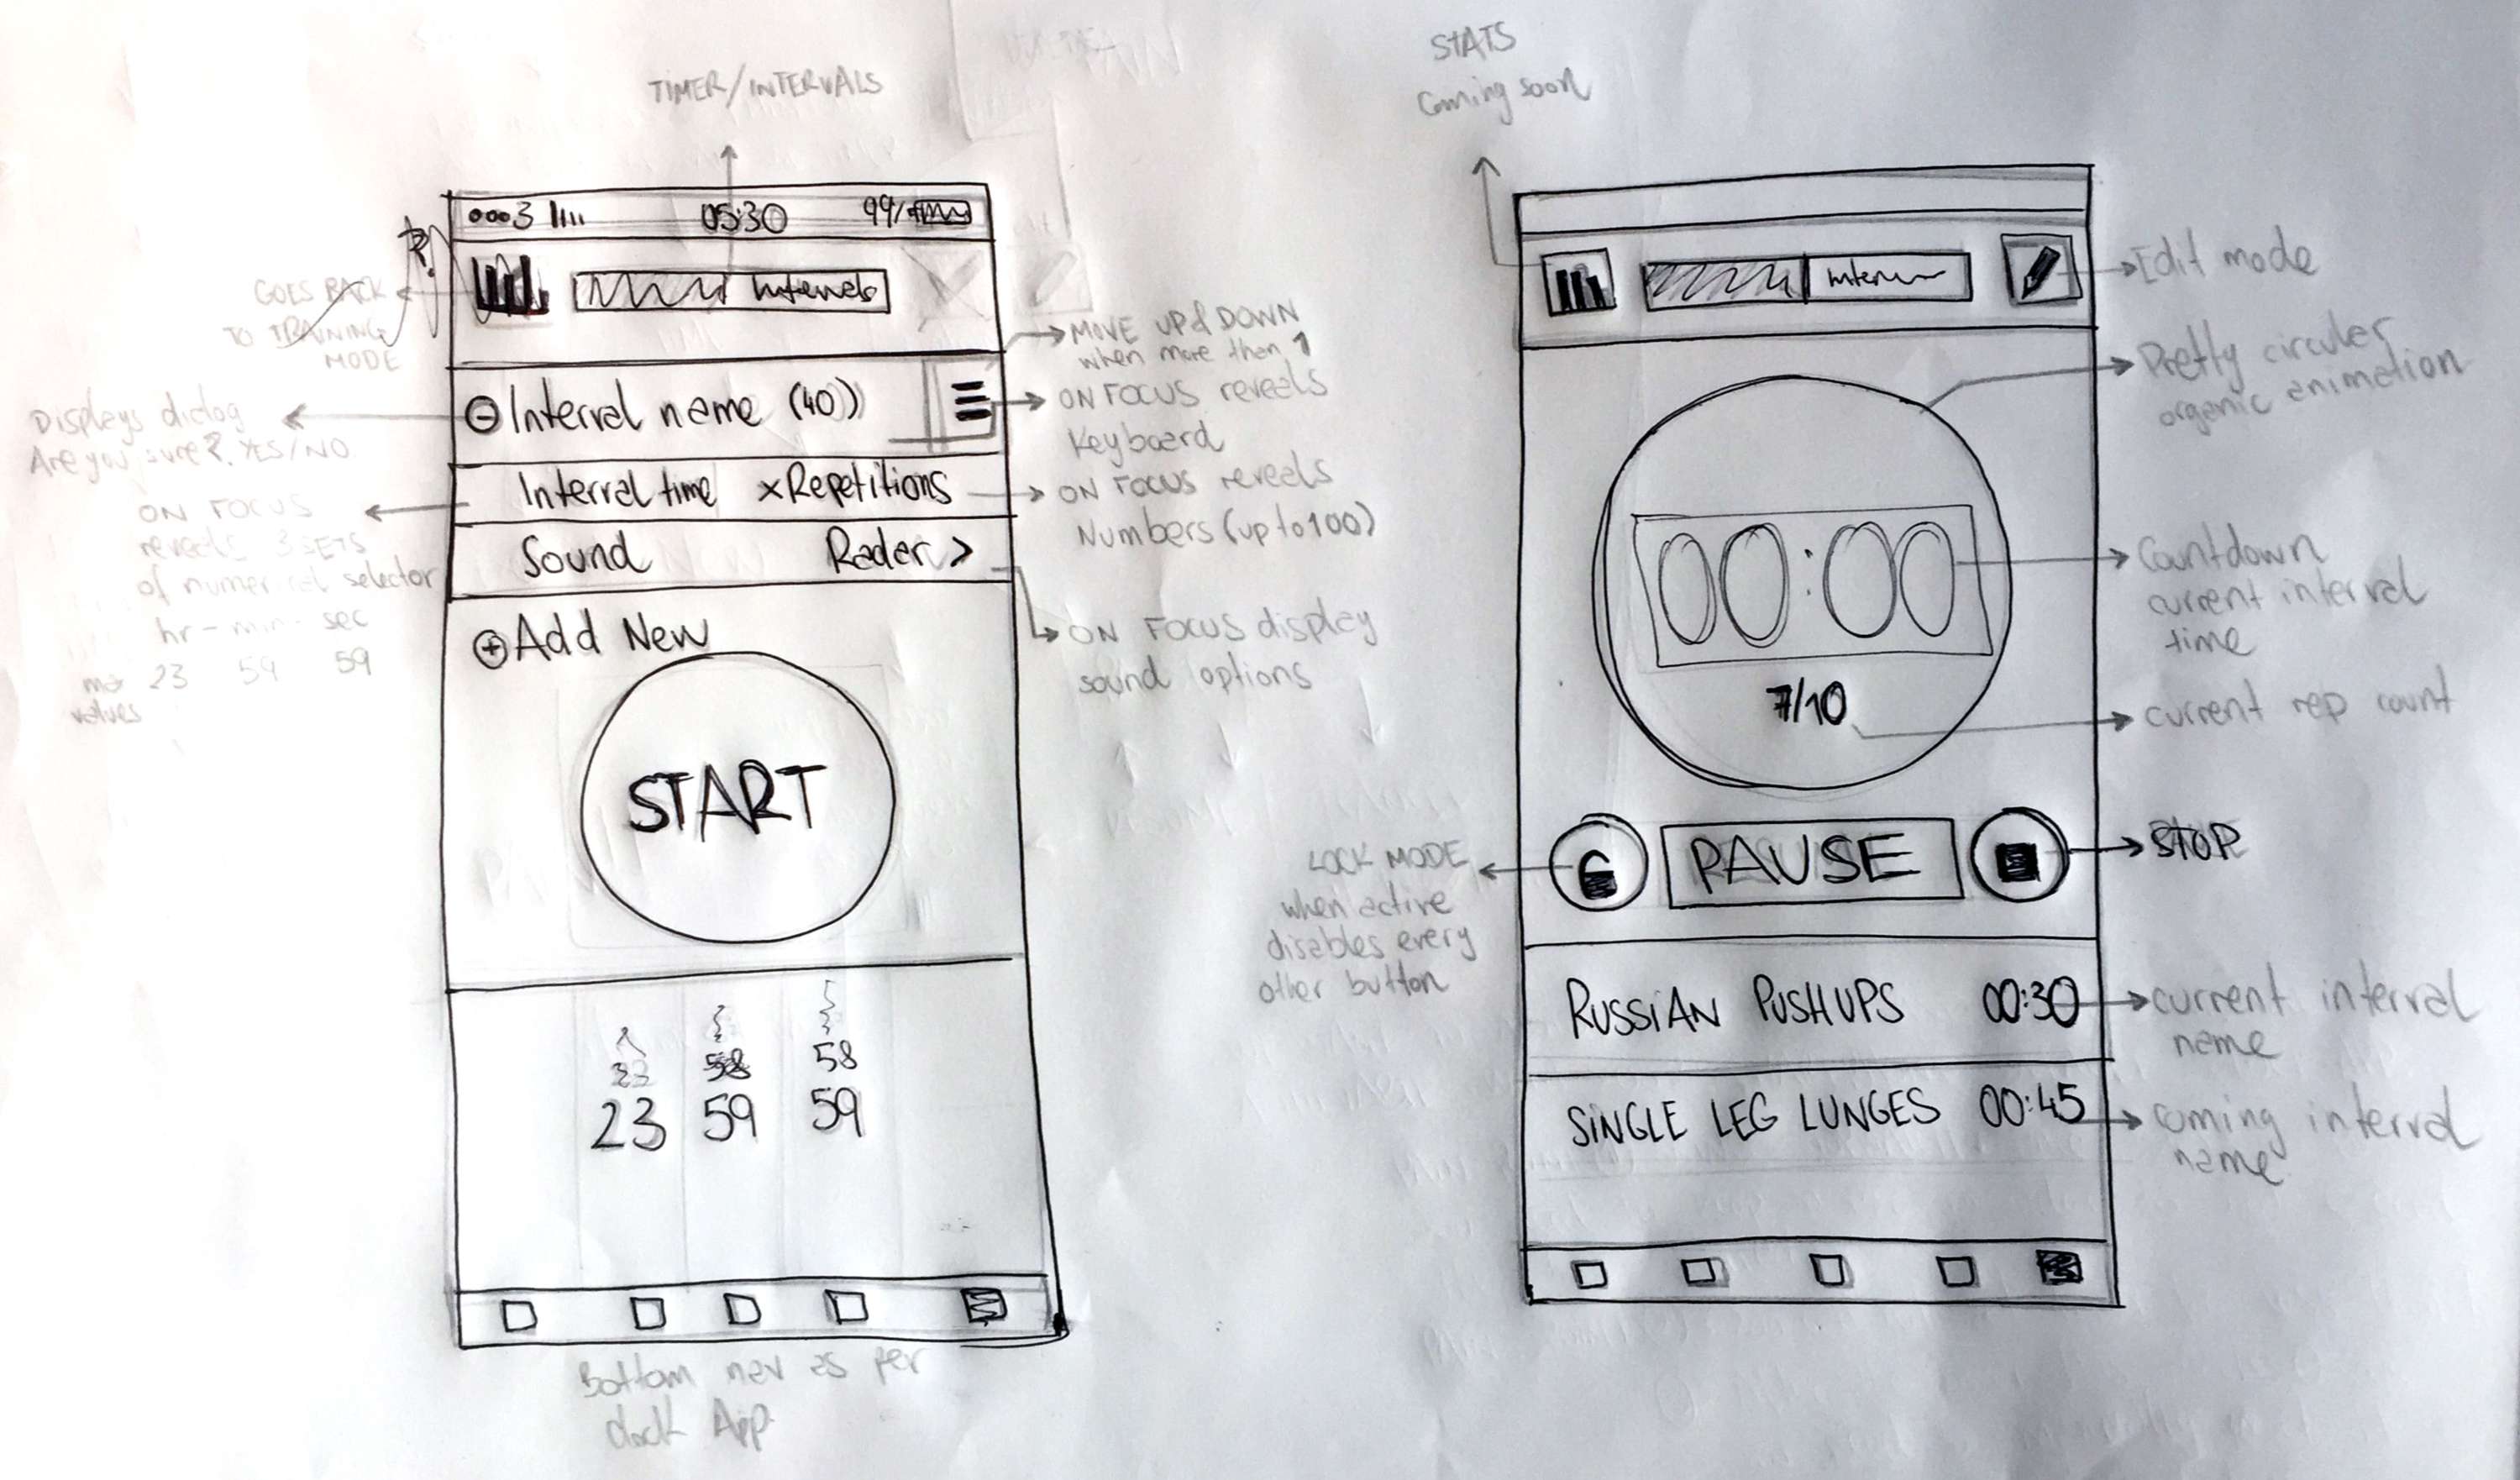 TIMER/INTERVALS
05:30
99%
Intervals
GOES BACK
TO TRAINING
MODE
Displays dialog
Are you sure? YES/NO
ON FOCUS
reveals 3 SETS
of numerical selector
hr - min - sec
max 23 59 59
values
Interval name (40)
Interval time xRepetitions
Sound Radar >
Add New
START
58 58
23 59 59
Bottom nav as per
clock App
MOVE UP & DOWN
when more than 1
ON FOCUS reveals
Keyboard
ON FOCUS reveals
Numbers (up to 100)
ON FOCUS display
sound options
STATS
Coming soon
00:00
7/10
PAUSE
RUSSIAN PUSHUPS 00:30
SINGLE LEG LUNGES 00:45
LOCK MODE
when active
disables every
other button
Edit mode
Pretty circular
organic animation
Countdown
current interval
time
current rep count
STOP
current interval
name
coming interval
name